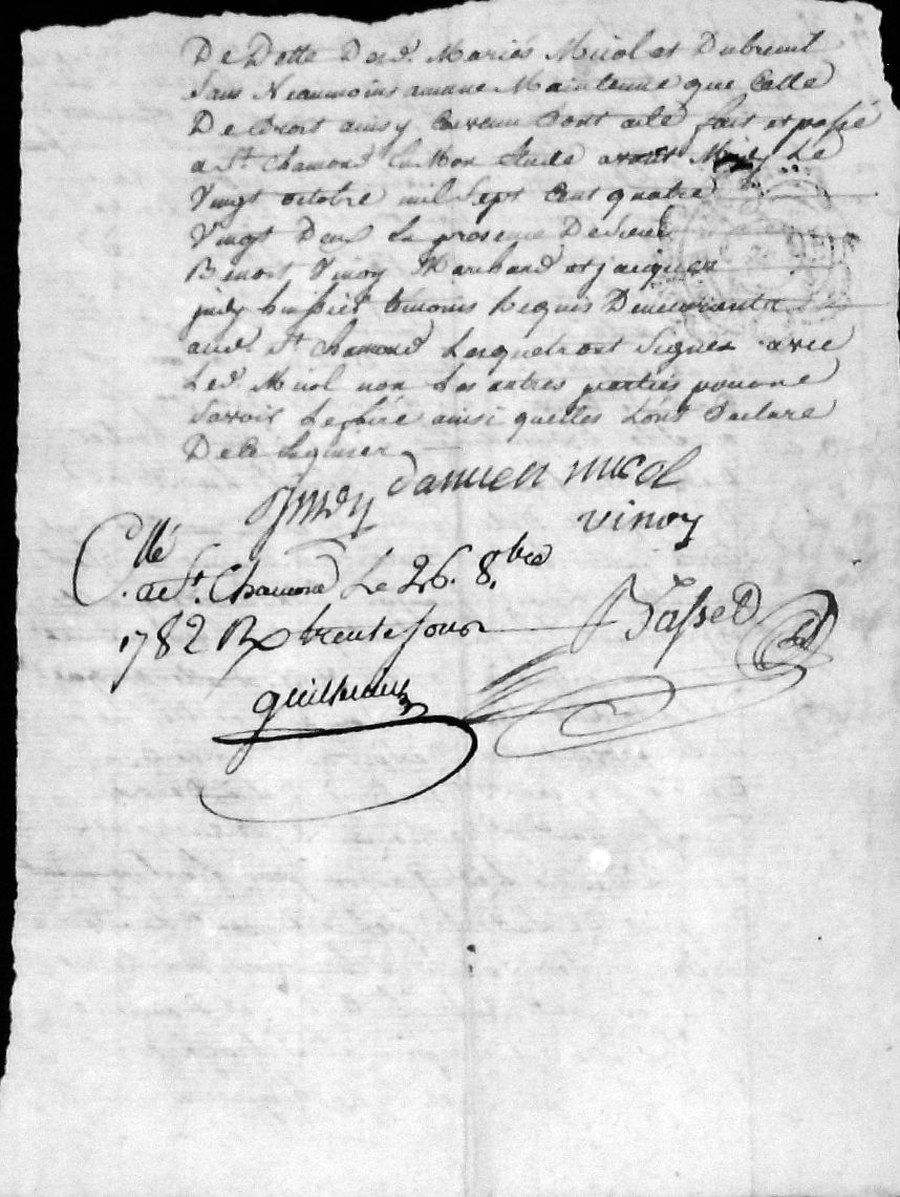 De Dotte Desd. Mariés Micol et Dubreuil
sans Neanmoins aucune Maintenue que Celle
De Droit ainsy Convenu Dont acte fait et passé
a St. Chamond En Mon Etude avant Midy Le
Vingt octobre mil Sept Cent quatre
Vingt Deux En presence De Sieur
Benoit Vinoy Marchand et jacques
judy huissier temoins Requis Demeurants
aud. St. Chamond Lesquels ont Signez avec
Led. Micol non Les autres parties pour ne
Savoir Le faire ainsi quelles L'ont Declaré
De ce Requises
Damien micol
vinoy
C.llé
a St. Chamond Le 26. 8.bre
1782 R trente sous
Basset
guilhaume